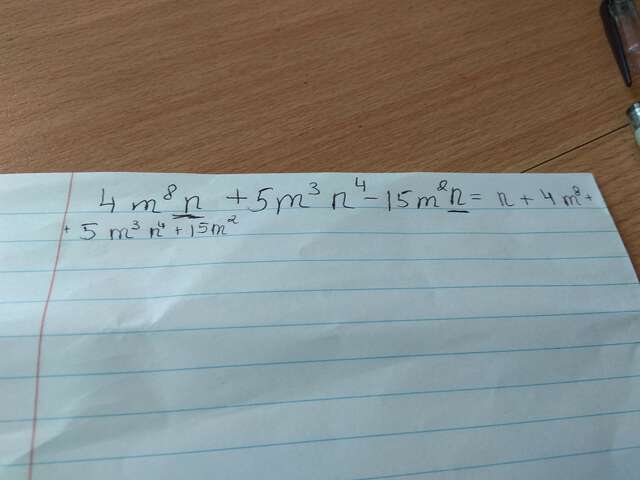 4 m⁸n + 5m³n⁴ - 15m²n = n + 4m⁸ +
+ 5m³n⁴ + 15m²